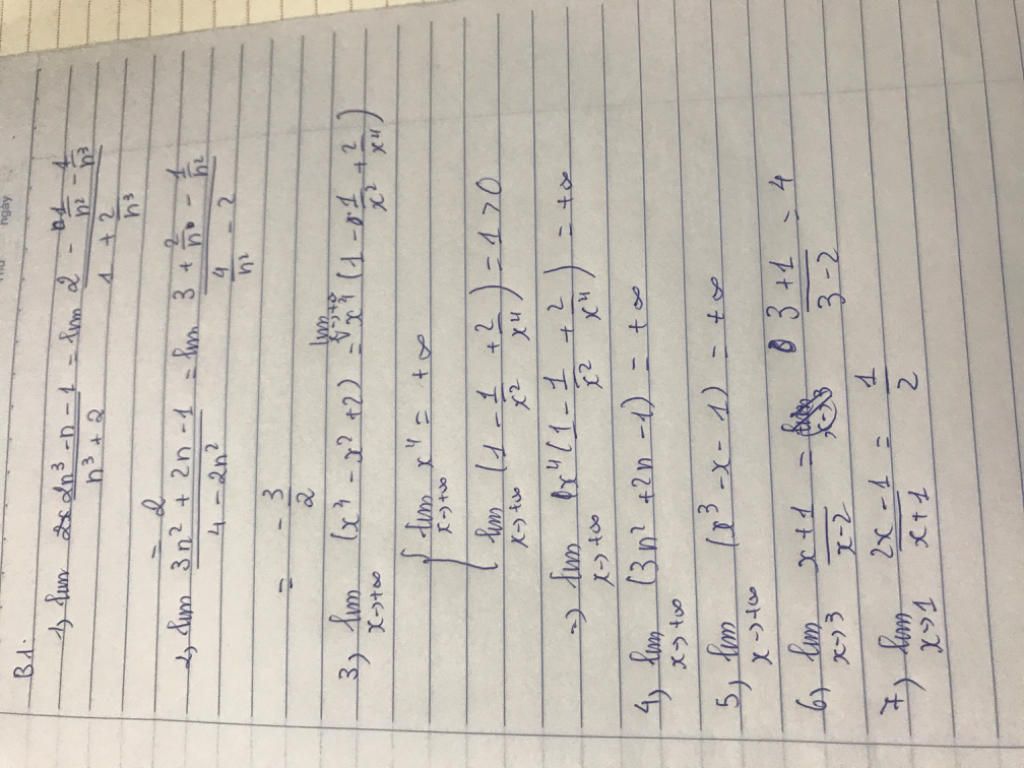 ngày
B1.
1, lim 2n³ - n - 1 / n³ + 2 = lim 2 - 1/n² - 1/n³ / 1 + 2/n³
= 2
2, lim 3n² + 2n - 1 / 4 - 2n² = lim 3 + 2/n - 1/n² / 4/n² - 2
= - 3/2
3, lim x→+∞ (x⁴ - x² + 2) = lim x→+∞ x⁴ (1 - 1/x² + 2/x⁴)
{ lim x→+∞ x⁴ = +∞
lim x→+∞ (1 - 1/x² + 2/x⁴) = 1 > 0
=> lim x→+∞ x⁴ (1 - 1/x² + 2/x⁴) = +∞
4, lim x→+∞ (3n² + 2n - 1) = +∞
5, lim x→+∞ (x³ - x - 1) = +∞
6, lim x→3 x+1 / x-2 = 3+1 / 3-2 = 4
7, lim x→1 2x-1 / x+1 = 1/2